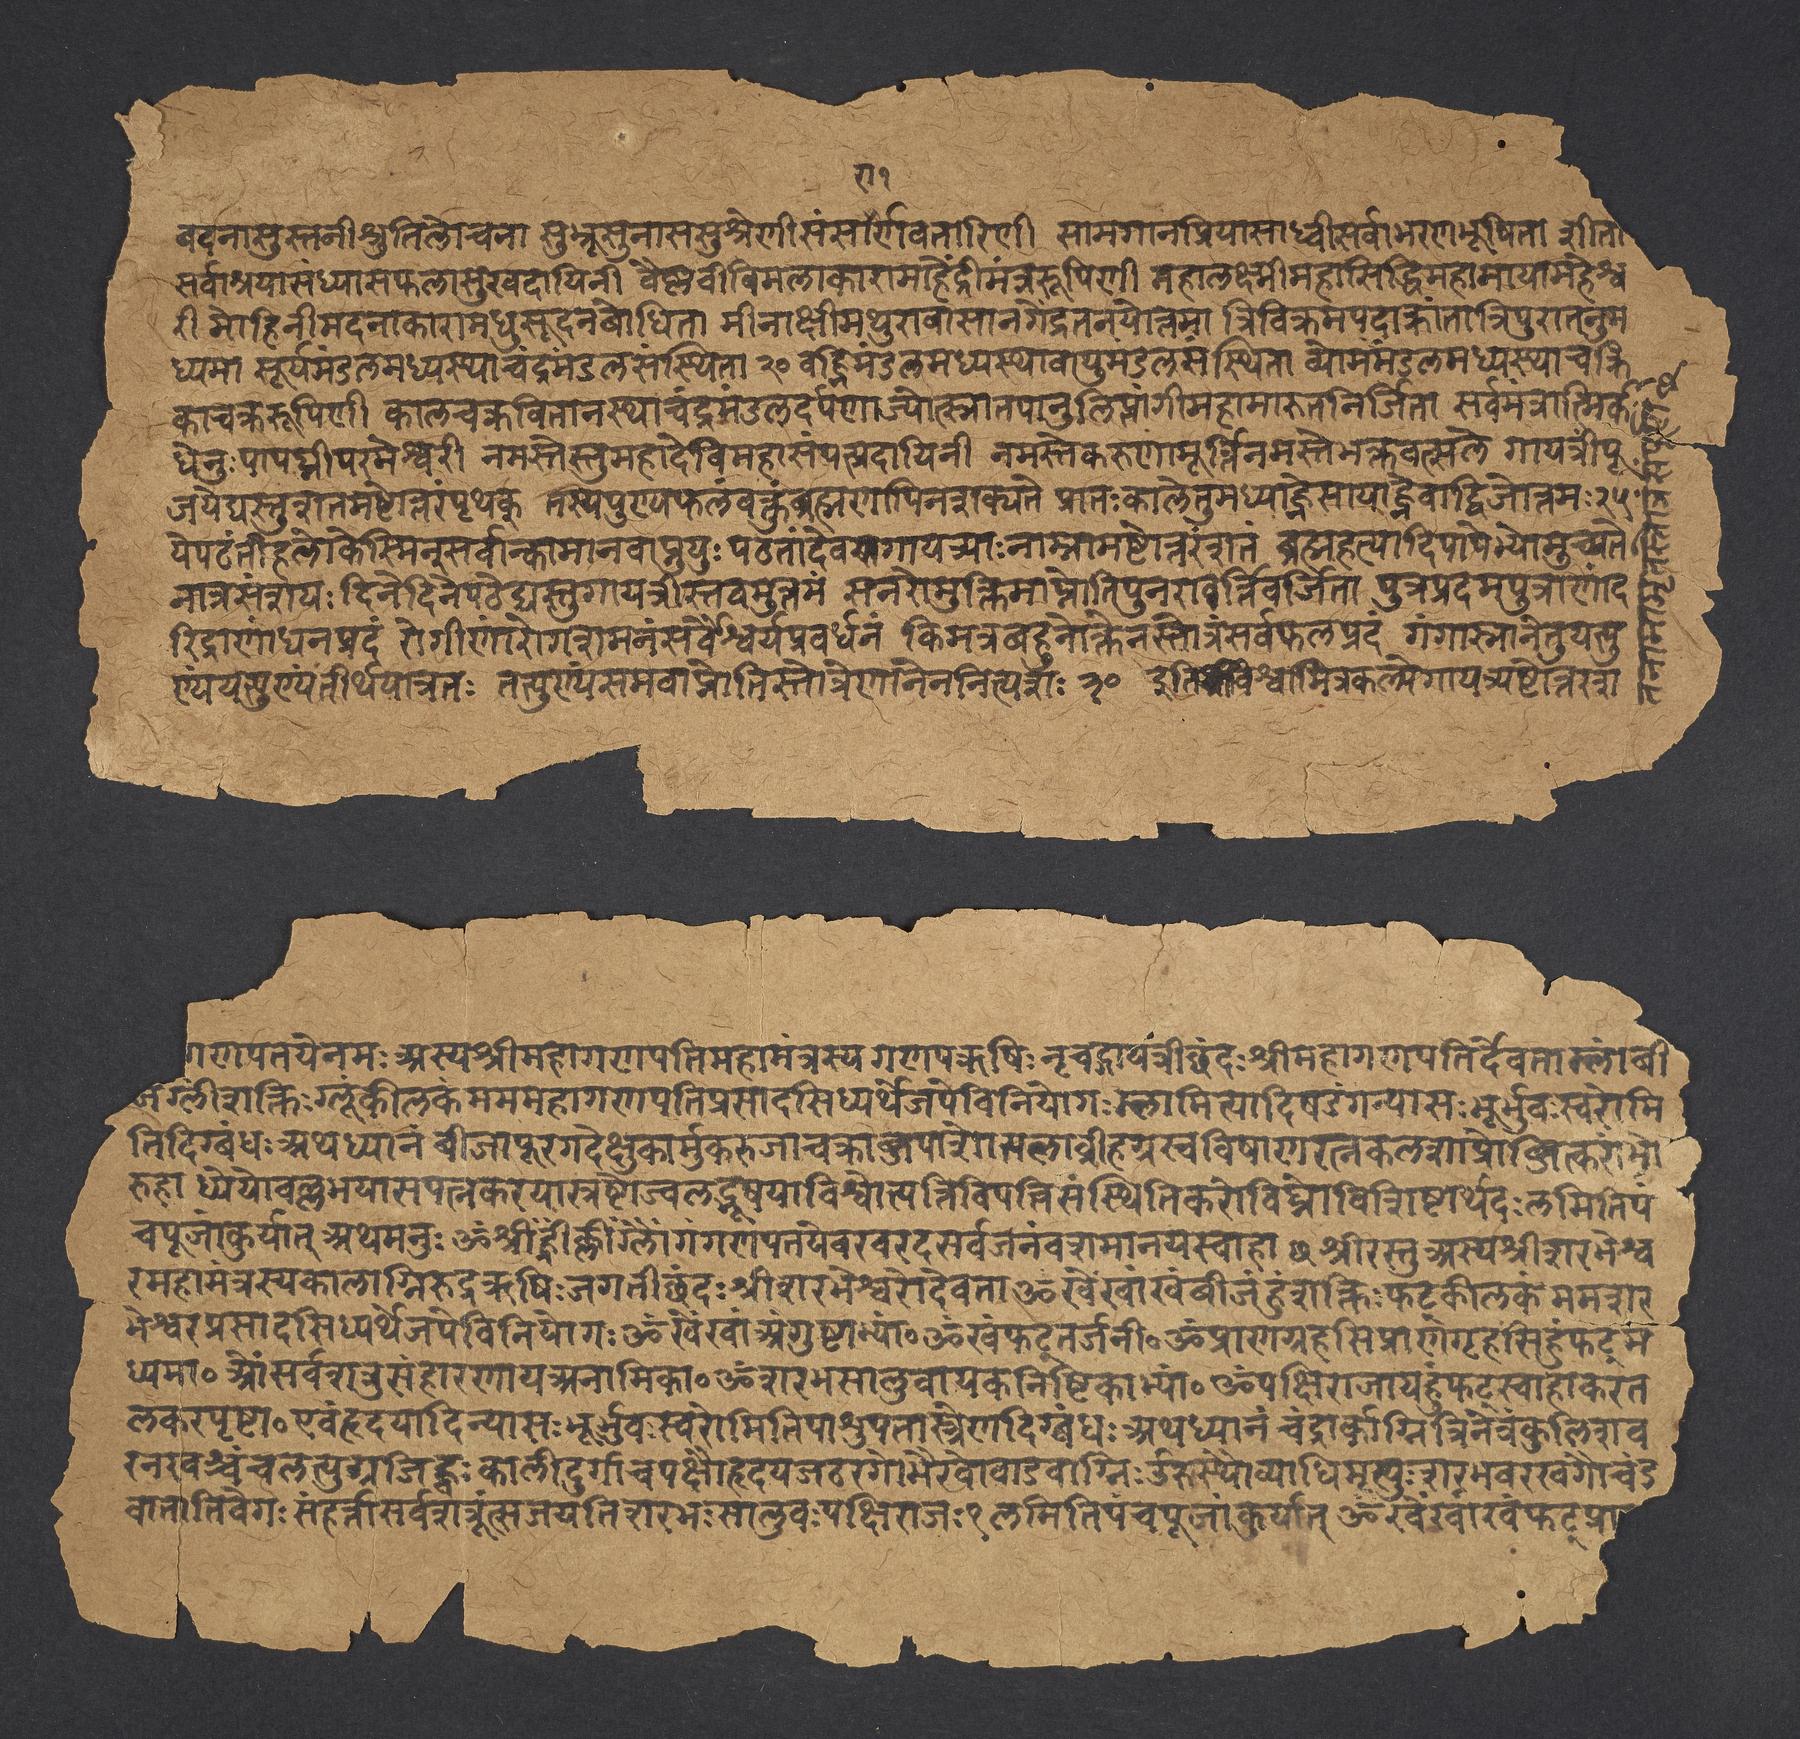 रा१
बदनासुस्तनीश्रुतिलोचना सुभ्रूसुनाससुश्रेणीसंसार्णवतारिणी सामगानप्रियासाध्वीसर्वाभरणभूषिता शीता
सर्वाश्रयासंध्यासफलासुखदायिनी वैष्णवीविमलाकारामाहेंद्रीमंत्ररूपिणी महालक्ष्मीमहासिद्धिमहामायामहेश्व
री मोहिनीमदनाकारामधुसूदनबोधिता मीनाक्षीमथुरावासानगेंद्रतनयोत्तमा त्रिविक्रमपदाक्रांतात्रिपुरातनुम
ध्यमा सूर्यमंडलमध्यस्थाचंद्रमंडलसंस्थिता २० वह्निमंडलमध्यस्थावायुमंडलसंस्थिता व्योममंडलमध्यस्थाचक्रि
काचक्ररूपिणी कालचक्रवितानस्थाचंद्रमंडलदर्पणाज्योत्स्नातपानुलिप्तांगीमहामारुतनिर्जिता सर्वमंत्रात्मिक
धेनुःपापघ्नीपरमेश्वरी नमस्तेस्तुमहादेविमहासंपत्प्रदायिनी नमस्तेकरुणामूर्त्तिनमस्तेभक्तवत्सले गायत्रींपू
जयेद्यस्तुशतमष्टोत्तरंपृथक् तस्यपुण्यफलंवक्तुंब्रह्मणापिनशक्यते प्रातःकालेतुमध्याह्नेसायाह्नेवाद्विजोत्तमः२५
येपठंतीहलोकेस्मिन्सर्वान्कामानवाप्नुयुः पठतांदेवगायत्र्याःनाम्नामष्टोत्तरंशतं ब्रह्महत्यादिपापेभ्योमुच्यते
नात्रसंशयः दिनेदिनेपठेद्यस्तुगायत्रीस्तवमुत्तमं सनरोमुक्तिमाप्नोतिपुनरावृत्तिवर्जिता पुत्रप्रदमपुत्राणांद
रिद्राणांधनप्रदं रोगीणांरोगशमनंसर्वैश्वर्यप्रवर्धनं किमत्रबहुनोक्तेनस्तोत्रंसर्वफलप्रदं गंगास्नानेतुयत्पु
ण्यंयत्पुण्यंतीर्थयात्रतः तत्पुण्यंसमवाप्नोतिस्तोत्रेणानेननित्यशः ३० इतिश्रीविश्वामित्रकल्पेगायत्र्यष्टोत्तरश
गणपतयेनमःअस्यश्रीमहागणपतिमहामंत्रस्य गणपऋषिः नृचद्गायत्रीछंदःश्रीमहागणपतिर्देवताग्लांबी
जंग्लींशक्तिःग्लूंकीलकं मममहागणपतिप्रसादसिध्यर्थेजपेविनियोगःग्लामित्यादिषडंगन्यासःभूर्भुवःस्वरोमि
तिदिग्बंधःअथध्यानं बीजापूरगदेक्षुकार्मुकरुजाचक्राब्जपाशोत्पलाव्रीह्यग्रस्वविषाणरत्नकलशाप्रोब्जित्करांभो
रुहा ध्येयोवल्लभयासपत्नकरयास्त्रष्टोज्वलद्भूषयाविश्वोत्पत्तिविपत्तिसंस्थितिकरोविघ्नोविशिष्टार्थदःलमितिपं
चपूजांकुर्यात् अथमनुः ॐश्रींह्रींक्लींग्लौंगंगणपतयेवरवरदसर्वजनंवशमानयस्वाहा ७ श्रीरस्तुअस्यश्रीशरभेश्व
रमहामंत्रस्यकालाग्निरुद्रऋषिःजगतीछंदःश्रीशरभेश्वरोदेवता ॐखेंखांखंबीजंहुंशक्तिःफट्कीलकं ममशर
भेश्वरप्रसादसिध्यर्थेजपेविनियोगः ॐखेंखांअंगुष्टाभ्यां॰ ॐखंफट्तर्जनी॰ ॐप्राणग्रहसिप्राणंगृहसिहुंफट्म
ध्यमा॰ ओंसर्वशत्रुसंहारणायअनामिका॰ ॐशरभसालुवायकनिष्टिकाभ्यां॰ ॐपक्षिराजायहुंफट्स्वाहाकरत
लकरपृष्टा॰ एवंहृदयादिन्यासःभूर्भुवःस्वरोमितिपाशुपतास्त्रेणदिग्बंधःअथध्यानं चंद्रार्काग्नित्रिनेत्रंकुलिशव
रनखश्चंचलत्युग्रजिह्वः कालीदुर्गाचपक्षौहृदयजठरगोभैरवोवाडवाग्निः ऊरुस्थौव्याधिमृत्युःशरभवरखगोचंड
वातातिवेगः संहर्त्तासर्वशत्रूंत्सजयतिशरभःसालुवःपक्षिराजः१ लमितिपंचपूजांकुर्यात् ॐखेंखांखंफट्प्रा